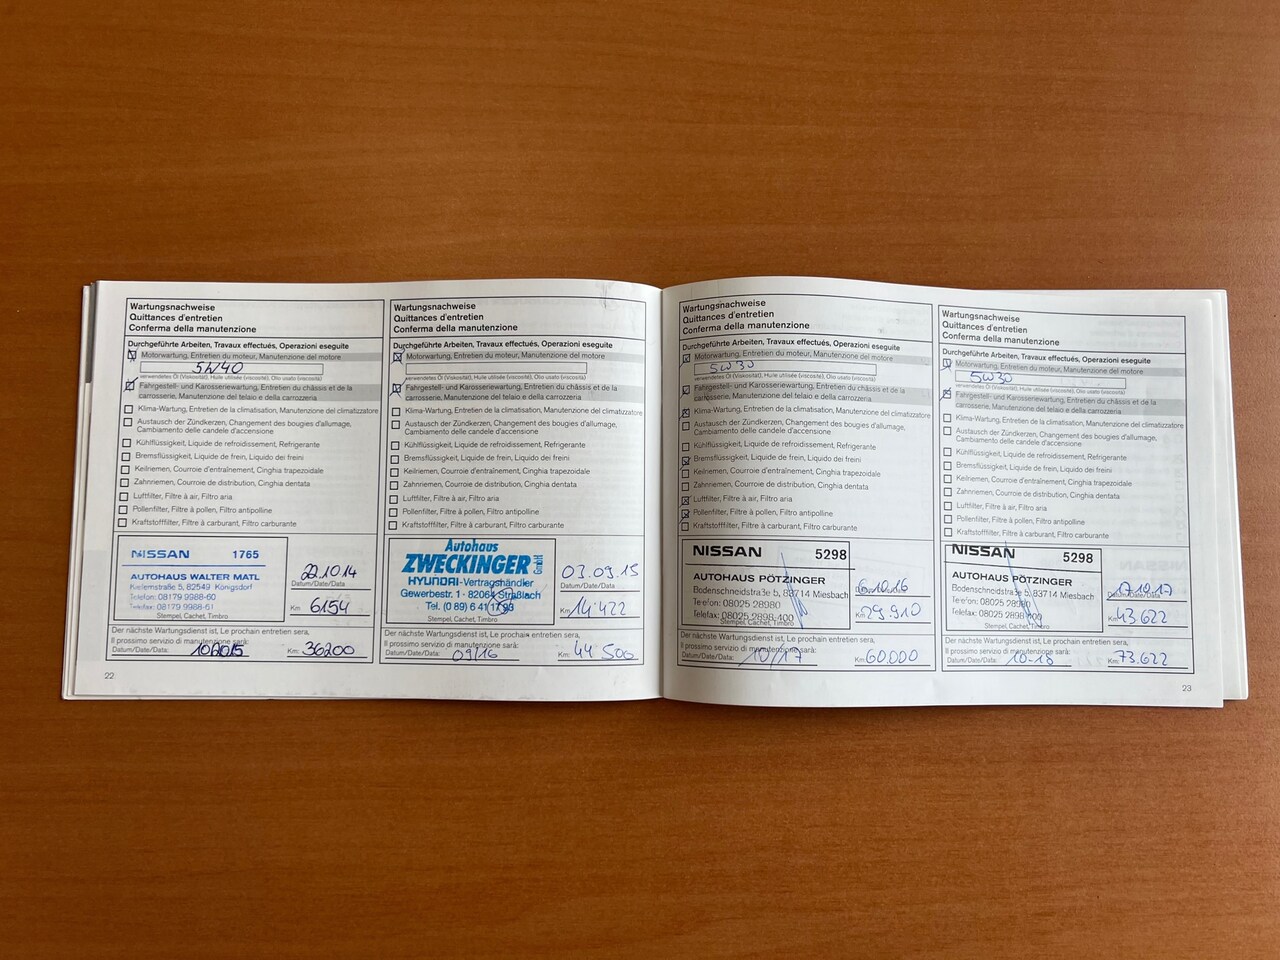 Wartungsnachweise
Quittances d'entretien
Conferma della manutenzione
Durchgeführte Arbeiten, Travaux effectués, Operazioni eseguite
Motorwartung, Entretien du moteur, Manutenzione del motore
5W40
verwendetes Öl (Viskosität), Huile utilisée (viscosité), Olio usato (viscosità)
Fahrgestell- und Karosseriewartung, Entretien du châssis et de la
carrosserie, Manutenzione del telaio e della carrozzeria
Klima-Wartung, Entretien de la climatisation, Manutenzione del climatizzatore
Austausch der Zündkerzen, Changement des bougies d'allumage,
Cambiamento delle candele d'accensione
Kühlflüssigkeit, Liquide de refroidissement, Refrigerante
Bremsflüssigkeit, Liquide de frein, Liquido dei freini
Keilriemen, Courroie d'entraînement, Cinghia trapezoidale
Zahnriemen, Courroie de distribution, Cinghia dentata
Luftfilter, Filtre à air, Filtro aria
Pollenfilter, Filtre à pollen, Filtro antipolline
Kraftstofffilter, Filtre à carburant, Filtro carburante
NISSAN 1765
AUTOHAUS WALTER MATL
Kielemstraße 5, 82549 Königsdorf
Telefon: 08179 9988-60
Telefax: 08179 9988-61
Stempel, Cachet, Timbro
22.10.14
Datum/Date/Data
Km 6154
Der nächste Wartungsdienst ist, Le prochain entretien sera,
Il prossimo servizio di manutenzione sarà:
Datum/Date/Data: Km: 36200
22
Wartungsnachweise
Quittances d'entretien
Conferma della manutenzione
Durchgeführte Arbeiten, Travaux effectués, Operazioni eseguite
Motorwartung, Entretien du moteur, Manutenzione del motore
verwendetes Öl (Viskosität), Huile utilisée (viscosité), Olio usato (viscosità)
Fahrgestell- und Karosseriewartung, Entretien du châssis et de la
carrosserie, Manutenzione del telaio e della carrozzeria
Klima-Wartung, Entretien de la climatisation, Manutenzione del climatizzatore
Austausch der Zündkerzen, Changement des bougies d'allumage,
Cambiamento delle candele d'accensione
Kühlflüssigkeit, Liquide de refroidissement, Refrigerante
Bremsflüssigkeit, Liquide de frein, Liquido dei freini
Keilriemen, Courroie d'entraînement, Cinghia trapezoidale
Zahnriemen, Courroie de distribution, Cinghia dentata
Luftfilter, Filtre à air, Filtro aria
Pollenfilter, Filtre à pollen, Filtro antipolline
Kraftstofffilter, Filtre à carburant, Filtro carburante
Autohaus
ZWECKINGER GmbH
HYUNDAI-Vertragshändler
Gewerbestr. 1 - 82064 Straßlach
Tel. (0 89) 6 41 17 93
Stempel, Cachet, Timbro
03.09.15
Datum/Date/Data
Km 14'422
Der nächste Wartungsdienst ist, Le prochain entretien sera,
Il prossimo servizio di manutenzione sarà:
Datum/Date/Data: 09/16 Km: 44 500
Wartungsnachweise
Quittances d'entretien
Conferma della manutenzione
Durchgeführte Arbeiten, Travaux effectués, Operazioni eseguite
Motorwartung, Entretien du moteur, Manutenzione del motore
5W30
verwendetes Öl (Viskosität), Huile utilisée (viscosité), Olio usato (viscosità)
Fahrgestell- und Karosseriewartung, Entretien du châssis et de la
carrosserie, Manutenzione del telaio e della carrozzeria
Klima-Wartung, Entretien de la climatisation, Manutenzione del climatizzatore
Austausch der Zündkerzen, Changement des bougies d'allumage,
Cambiamento delle candele d'accensione
Kühlflüssigkeit, Liquide de refroidissement, Refrigerante
Bremsflüssigkeit, Liquide de frein, Liquido dei freini
Keilriemen, Courroie d'entraînement, Cinghia trapezoidale
Zahnriemen, Courroie de distribution, Cinghia dentata
Luftfilter, Filtre à air, Filtro aria
Pollenfilter, Filtre à pollen, Filtro antipolline
Kraftstofffilter, Filtre à carburant, Filtro carburante
NISSAN 5298
AUTOHAUS PÖTZINGER
Bodenschneidstraße 5, 83714 Miesbach
Telefon: 08025 28980
Telefax: 08025 2898-400
Stempel, Cachet, Timbro
6.10.16
Km 29.910
Der nächste Wartungsdienst ist, Le prochain entretien sera,
Il prossimo servizio di manutenzione sarà:
Datum/Date/Data: 10/17 Km: 60.000
Wartungsnachweise
Quittances d'entretien
Conferma della manutenzione
Durchgeführte Arbeiten, Travaux effectués, Operazioni eseguite
Motorwartung, Entretien du moteur, Manutenzione del motore
5W30
verwendetes Öl (Viskosität), Huile utilisée (viscosité), Olio usato (viscosità)
Fahrgestell- und Karosseriewartung, Entretien du châssis et de la
carrosserie, Manutenzione del telaio e della carrozzeria
Klima-Wartung, Entretien de la climatisation, Manutenzione del climatizzatore
Austausch der Zündkerzen, Changement des bougies d'allumage,
Cambiamento delle candele d'accensione
Kühlflüssigkeit, Liquide de refroidissement, Refrigerante
Bremsflüssigkeit, Liquide de frein, Liquido dei freini
Keilriemen, Courroie d'entraînement, Cinghia trapezoidale
Zahnriemen, Courroie de distribution, Cinghia dentata
Luftfilter, Filtre à air, Filtro aria
Pollenfilter, Filtre à pollen, Filtro antipolline
Kraftstofffilter, Filtre à carburant, Filtro carburante
NISSAN 5298
AUTOHAUS PÖTZINGER
Bodenschneidstraße 5, 83714 Miesbach
Telefon: 08025 28980
Telefax: 08025 2898-400
Stempel, Cachet, Timbro
17.10.17
Datum/Date/Data
Km 43.622
Der nächste Wartungsdienst ist, Le prochain entretien sera,
Il prossimo servizio di manutenzione sarà:
Datum/Date/Data: 10-18 Km: 73.622
23